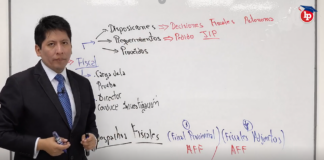 lp
Disposiciones → Decisiones Fiscales Autónomas
Requerimientos → Pedido JIP
Providencias
Fiscal
Carga de la
Prueba
Director
Conduce Investigación
Despachos Fiscales
(Fiscal Provincial)
(Fiscales Adjuntos)
AFF
AFF